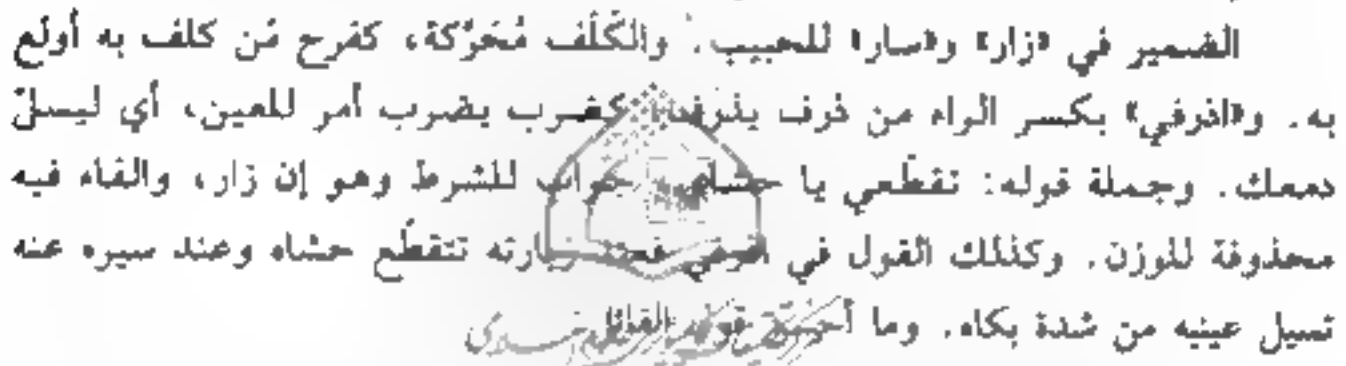 الضمير في «زار» و«سار» للحبيب. والكَلَف مُحَرّكة، كفرح مَن كلف به أولع
به. و«اذرفي» بكسر الراء من ذرف يذرف كضرب يضرب أمر للعين، أي ليسلْ
دمعك. وجملة قوله: تقطّعي يا حشاي جواب للشرط وهو إن زار، والفاء فيه
محذوفة للوزن. وكذلك القول في اذرفي فعند زيارته تتقطّع حشاه وعند سيره عنه
تسيل عينيه من شدة بكاه. وما أحسن قول القائل